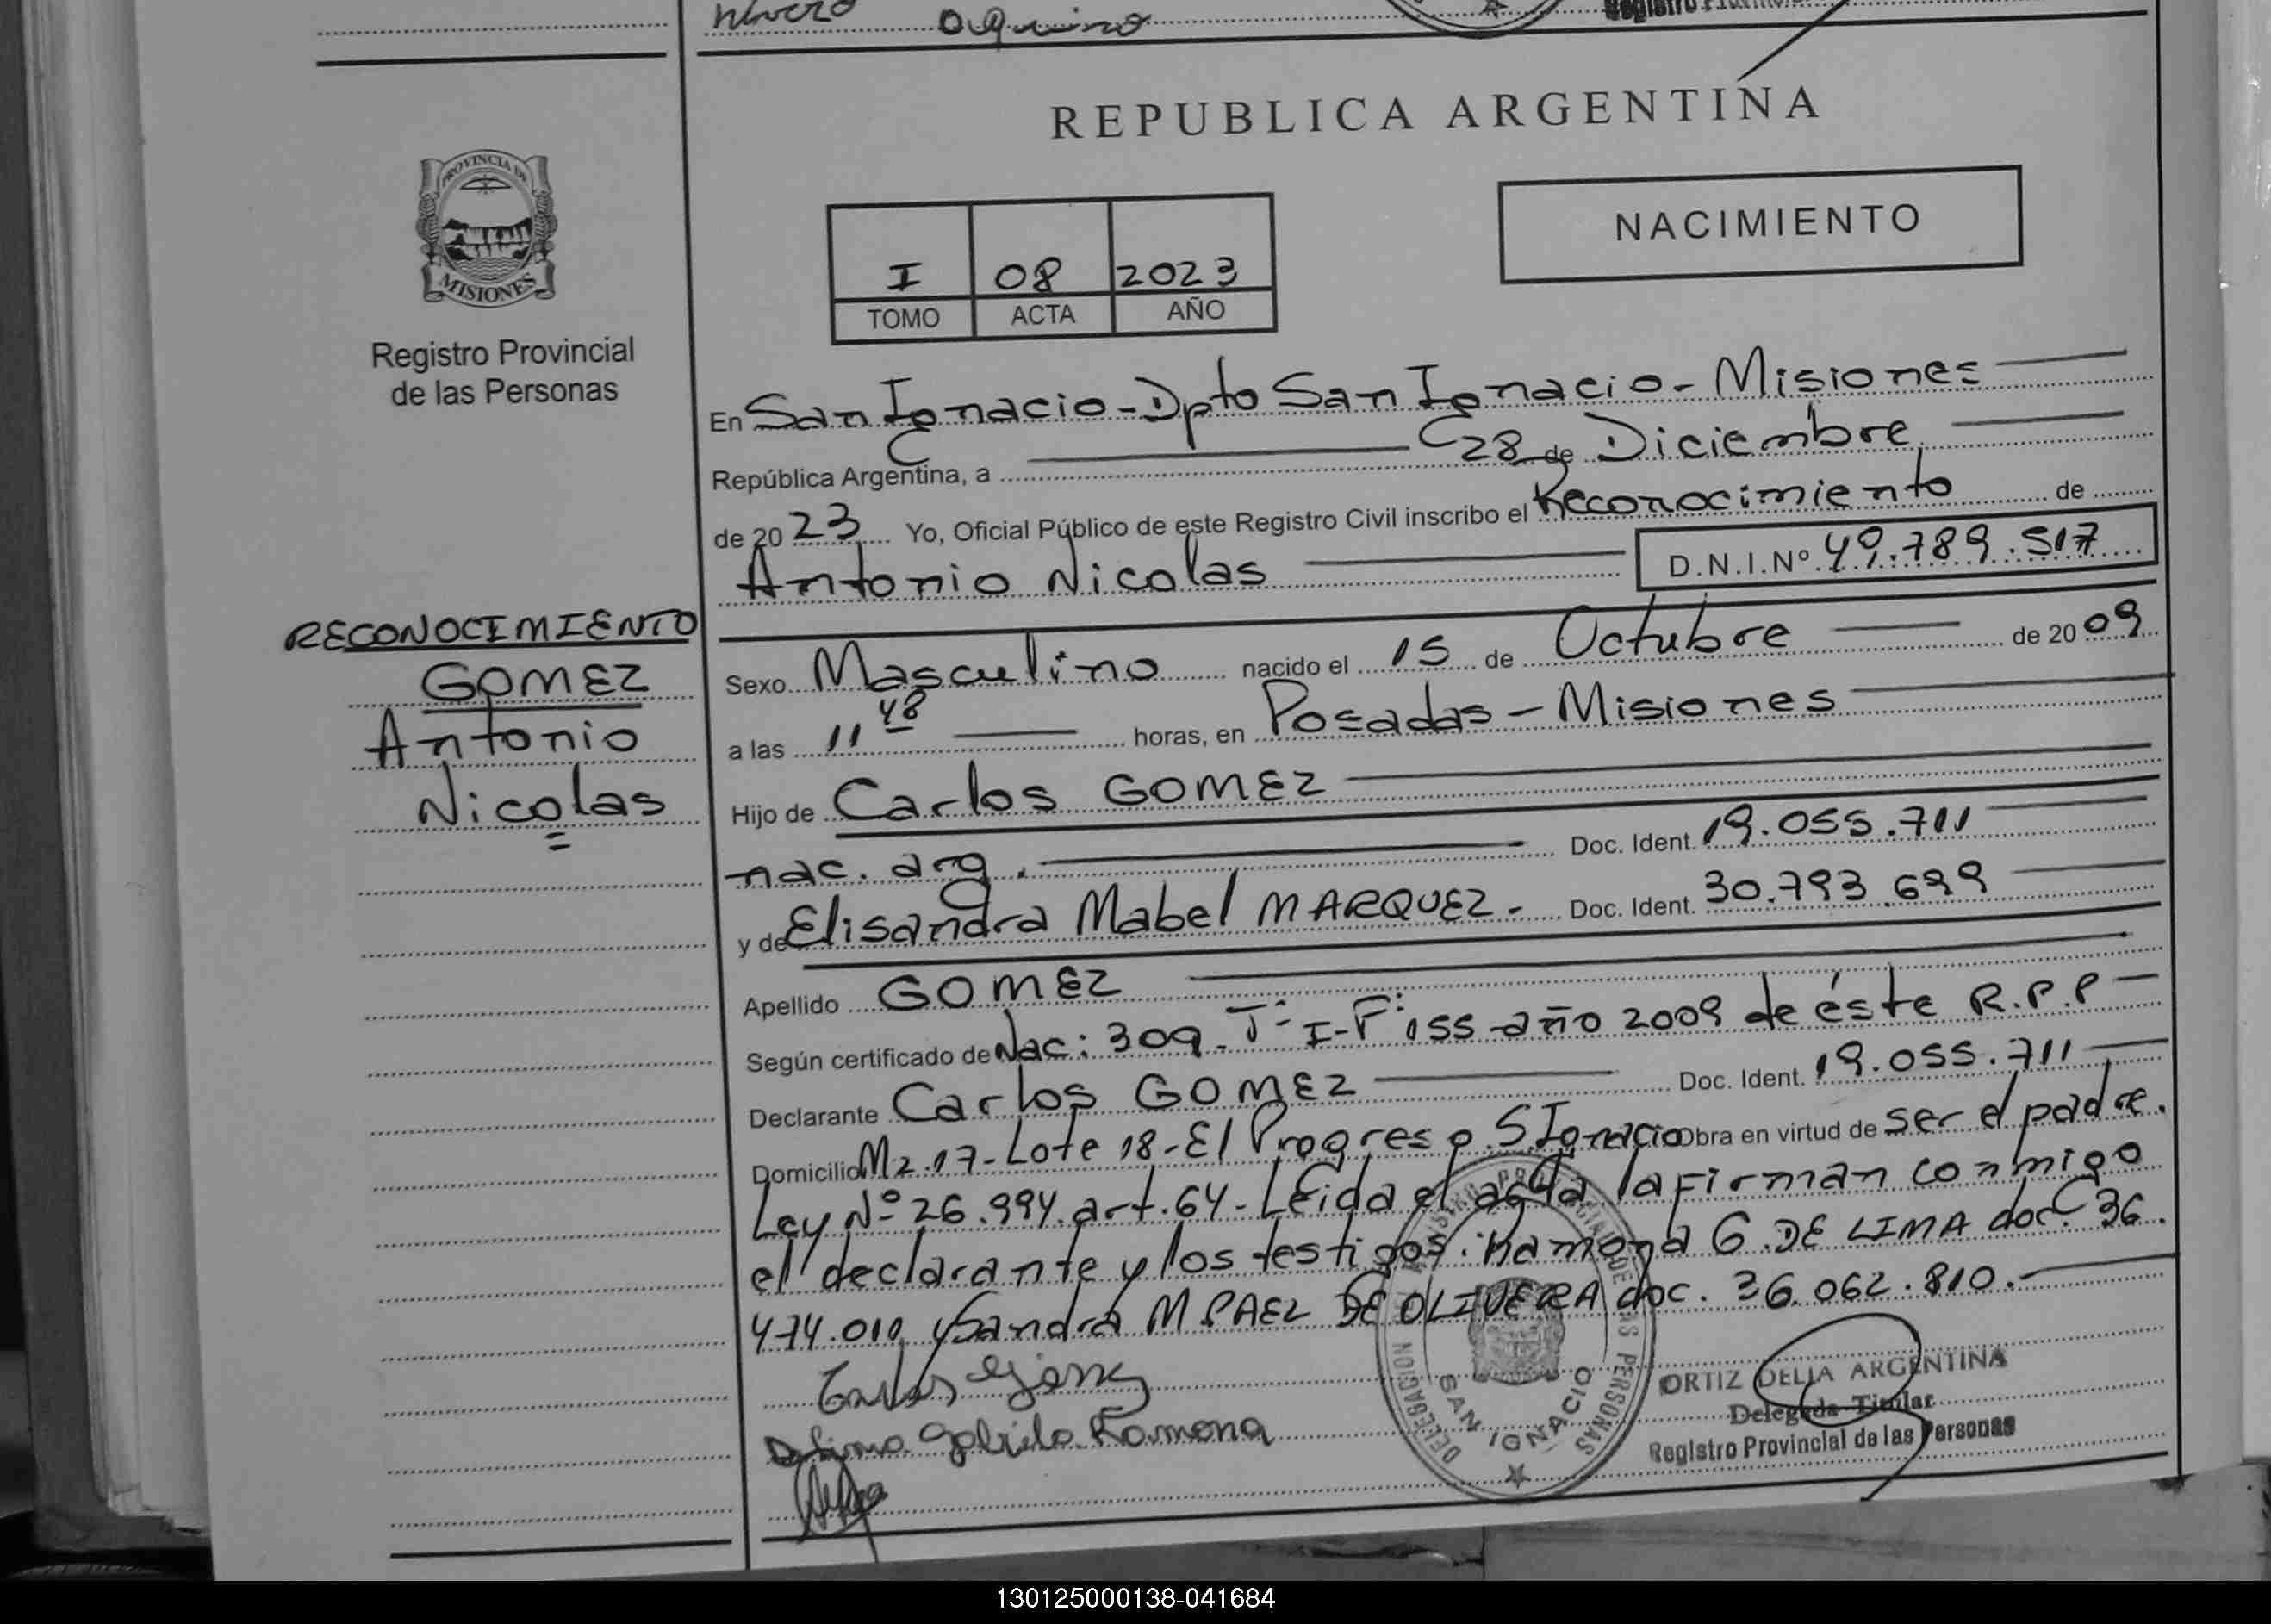 Aquino
REPUBLICA ARGENTINA
PROVINCIA DE
MISIONES
Registro Provincial
de las Personas
NACIMIENTO
I 08 2023
TOMO ACTA AÑO
En San Ignacio - Dpto San Ignacio - Misiones
República Argentina, a 28 de Diciembre
de 2023 Yo, Oficial Público de este Registro Civil inscribo el Reconocimiento de
Antonio Nicolas D.N.I.Nº 49.789.517
RECONOCIMIENTO
GOMEZ
Antonio
Nicolas
Sexo Masculino nacido el 15 de Octubre de 2009
a las 11 48 horas, en Posadas - Misiones
Hijo de Carlos GOMEZ
nac. arg. Doc. Ident. 19.055.711
y de Elisandra Mabel MARQUEZ. Doc. Ident. 30.793.699
Apellido GOMEZ
Según certificado de Nac: 309. Tº I - Fº 155 - año 2009 de éste R.P.P
Declarante Carlos GOMEZ Doc. Ident. 19.055.711
Domicilio Mz.17 - Lote 18 - El Progreso S Ignacio Obra en virtud de ser el padre.
Ley Nº 26.994. art. 64 - Leida el acta la firman conmigo
el declarante y los testigos: Ramona G. DE LIMA doc. 36.
474.010 y Sandra M PAEZ DE OLIVERA doc. 36.062.810.
Carlos Gomez
Gabriela Ramona
REGISTRO PROVINCIAL DE LAS PERSONAS
DELEGACION
SAN IGNACIO
ORTIZ DELIA ARGENTINA
Delegada Titular
Registro Provincial de las Personas
130125000138-041684